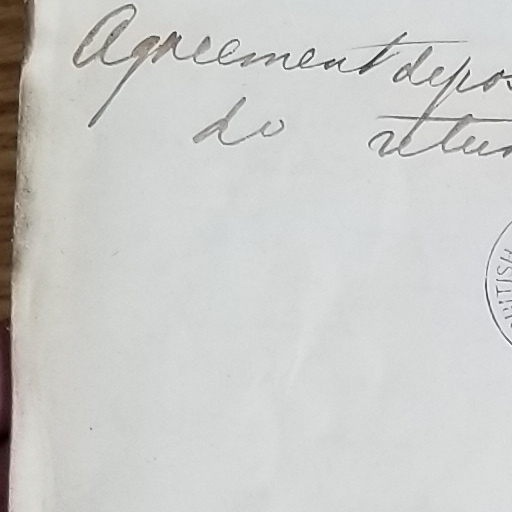 Agreement depos
do retur
RITISH